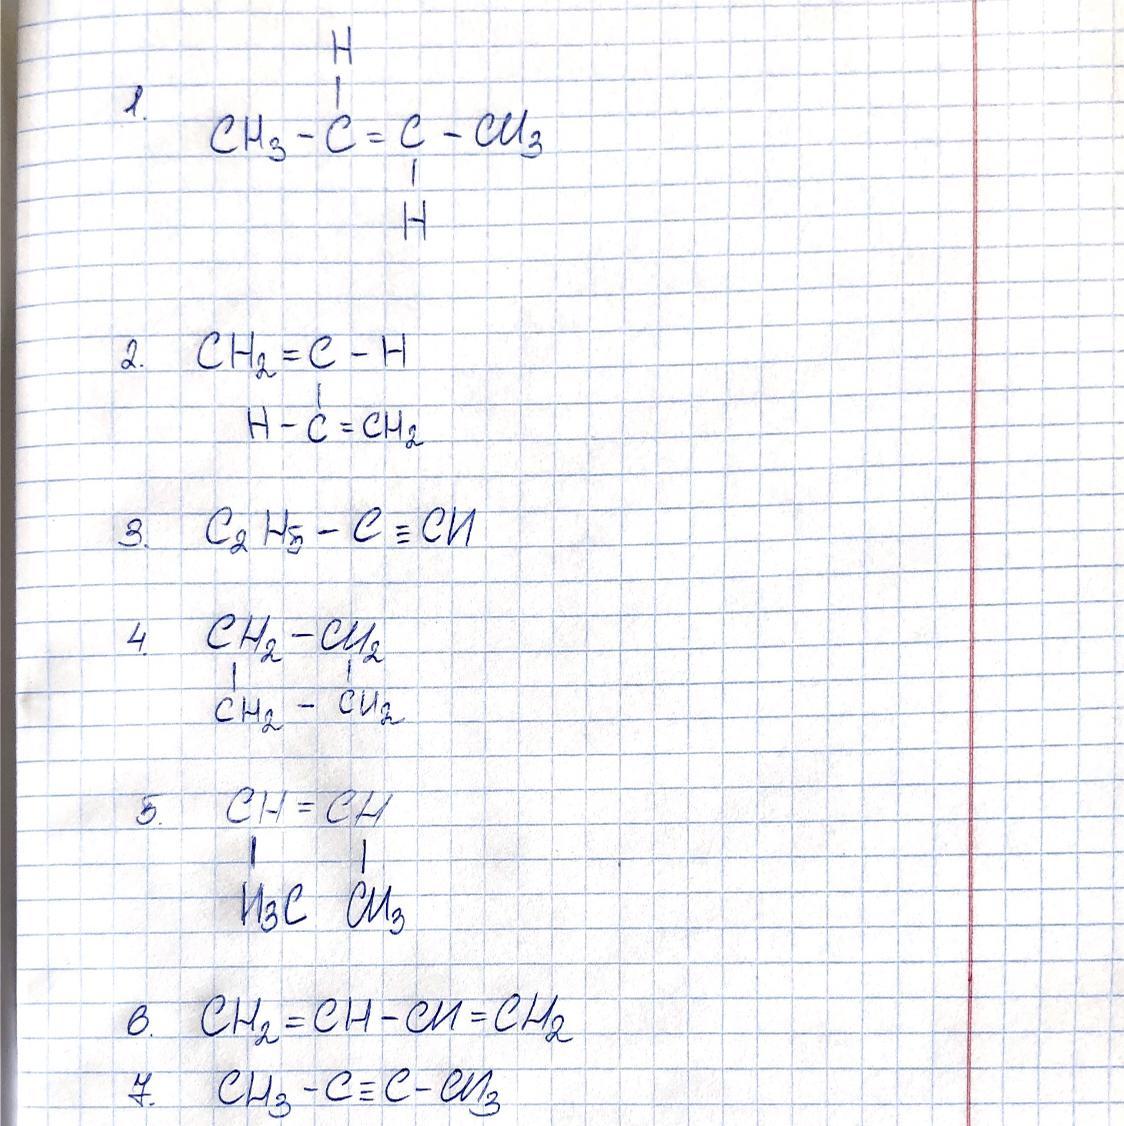 H
|
1. CH₃ - C = C - CH₃
|
H
2. CH₂ = C - H
|
H - C = CH₂
3. C₂H₅ - C ≡ CH
4. CH₂ - CH₂
| |
CH₂ - CH₂
5. CH = CH
| |
H₃C CH₃
6. CH₂ = CH - CH = CH₂
7. CH₃ - C ≡ C - CH₃